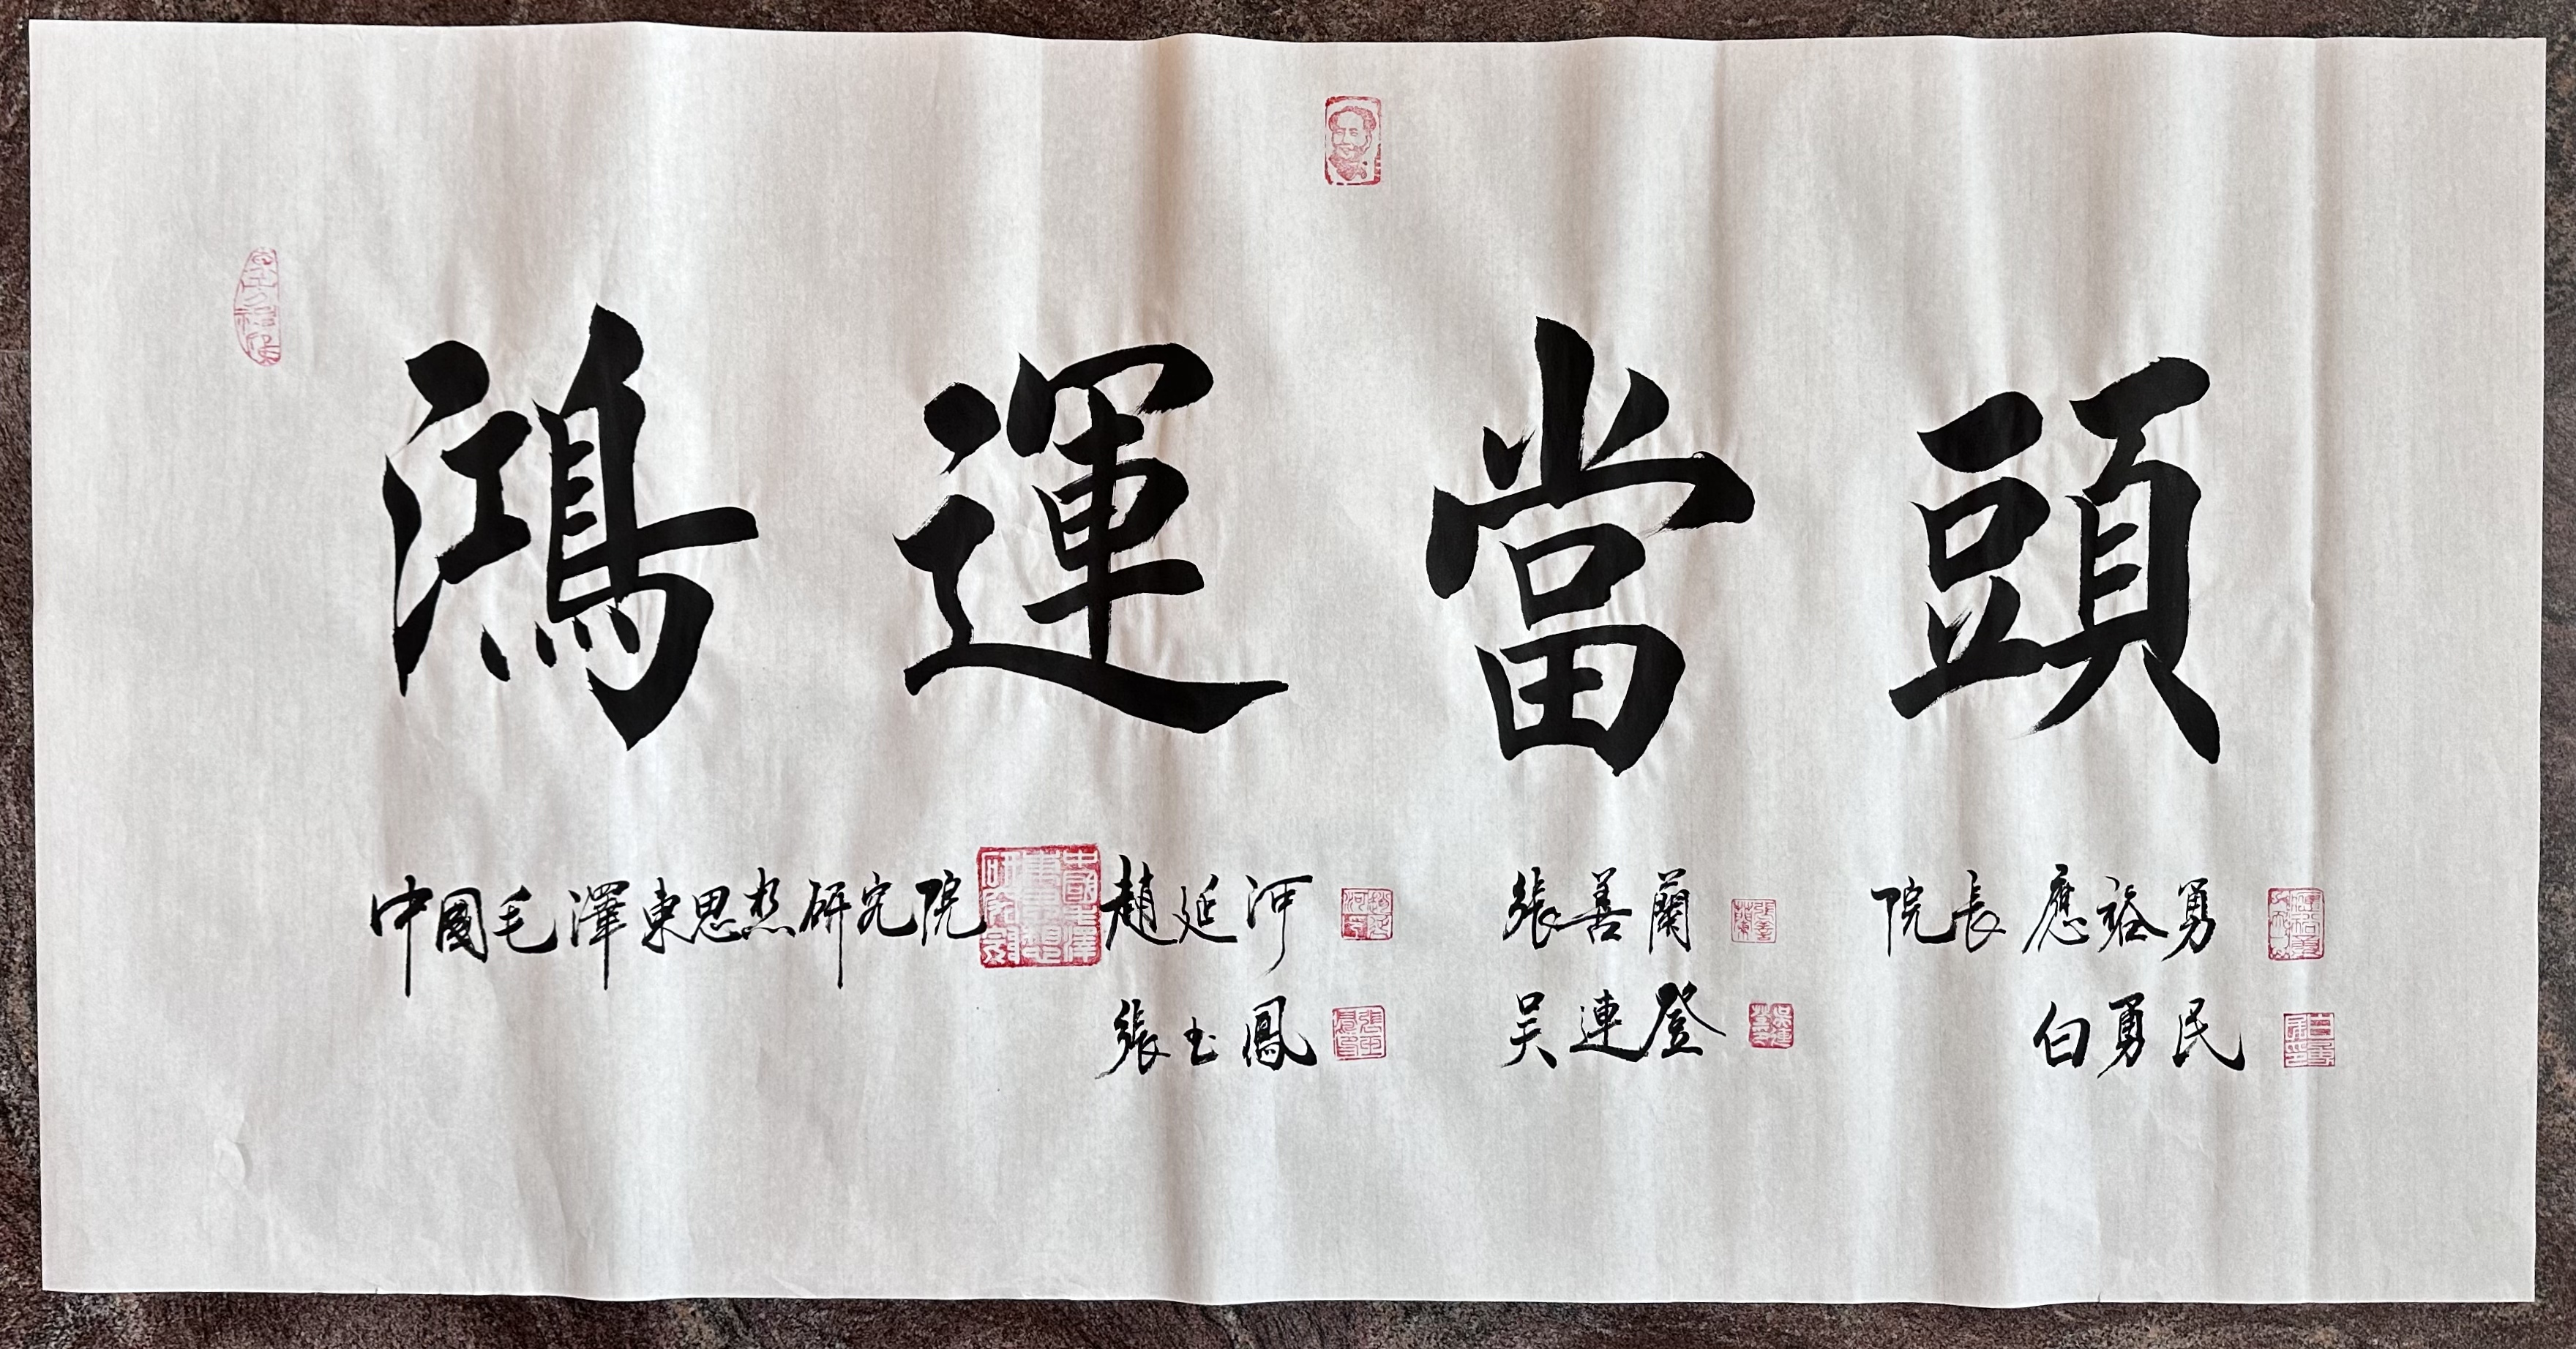 鴻運當頭
中國毛澤東思想研究院 趙延河 張善蘭 院長 應裕勇
張玉鳳 吳連登 白勇民